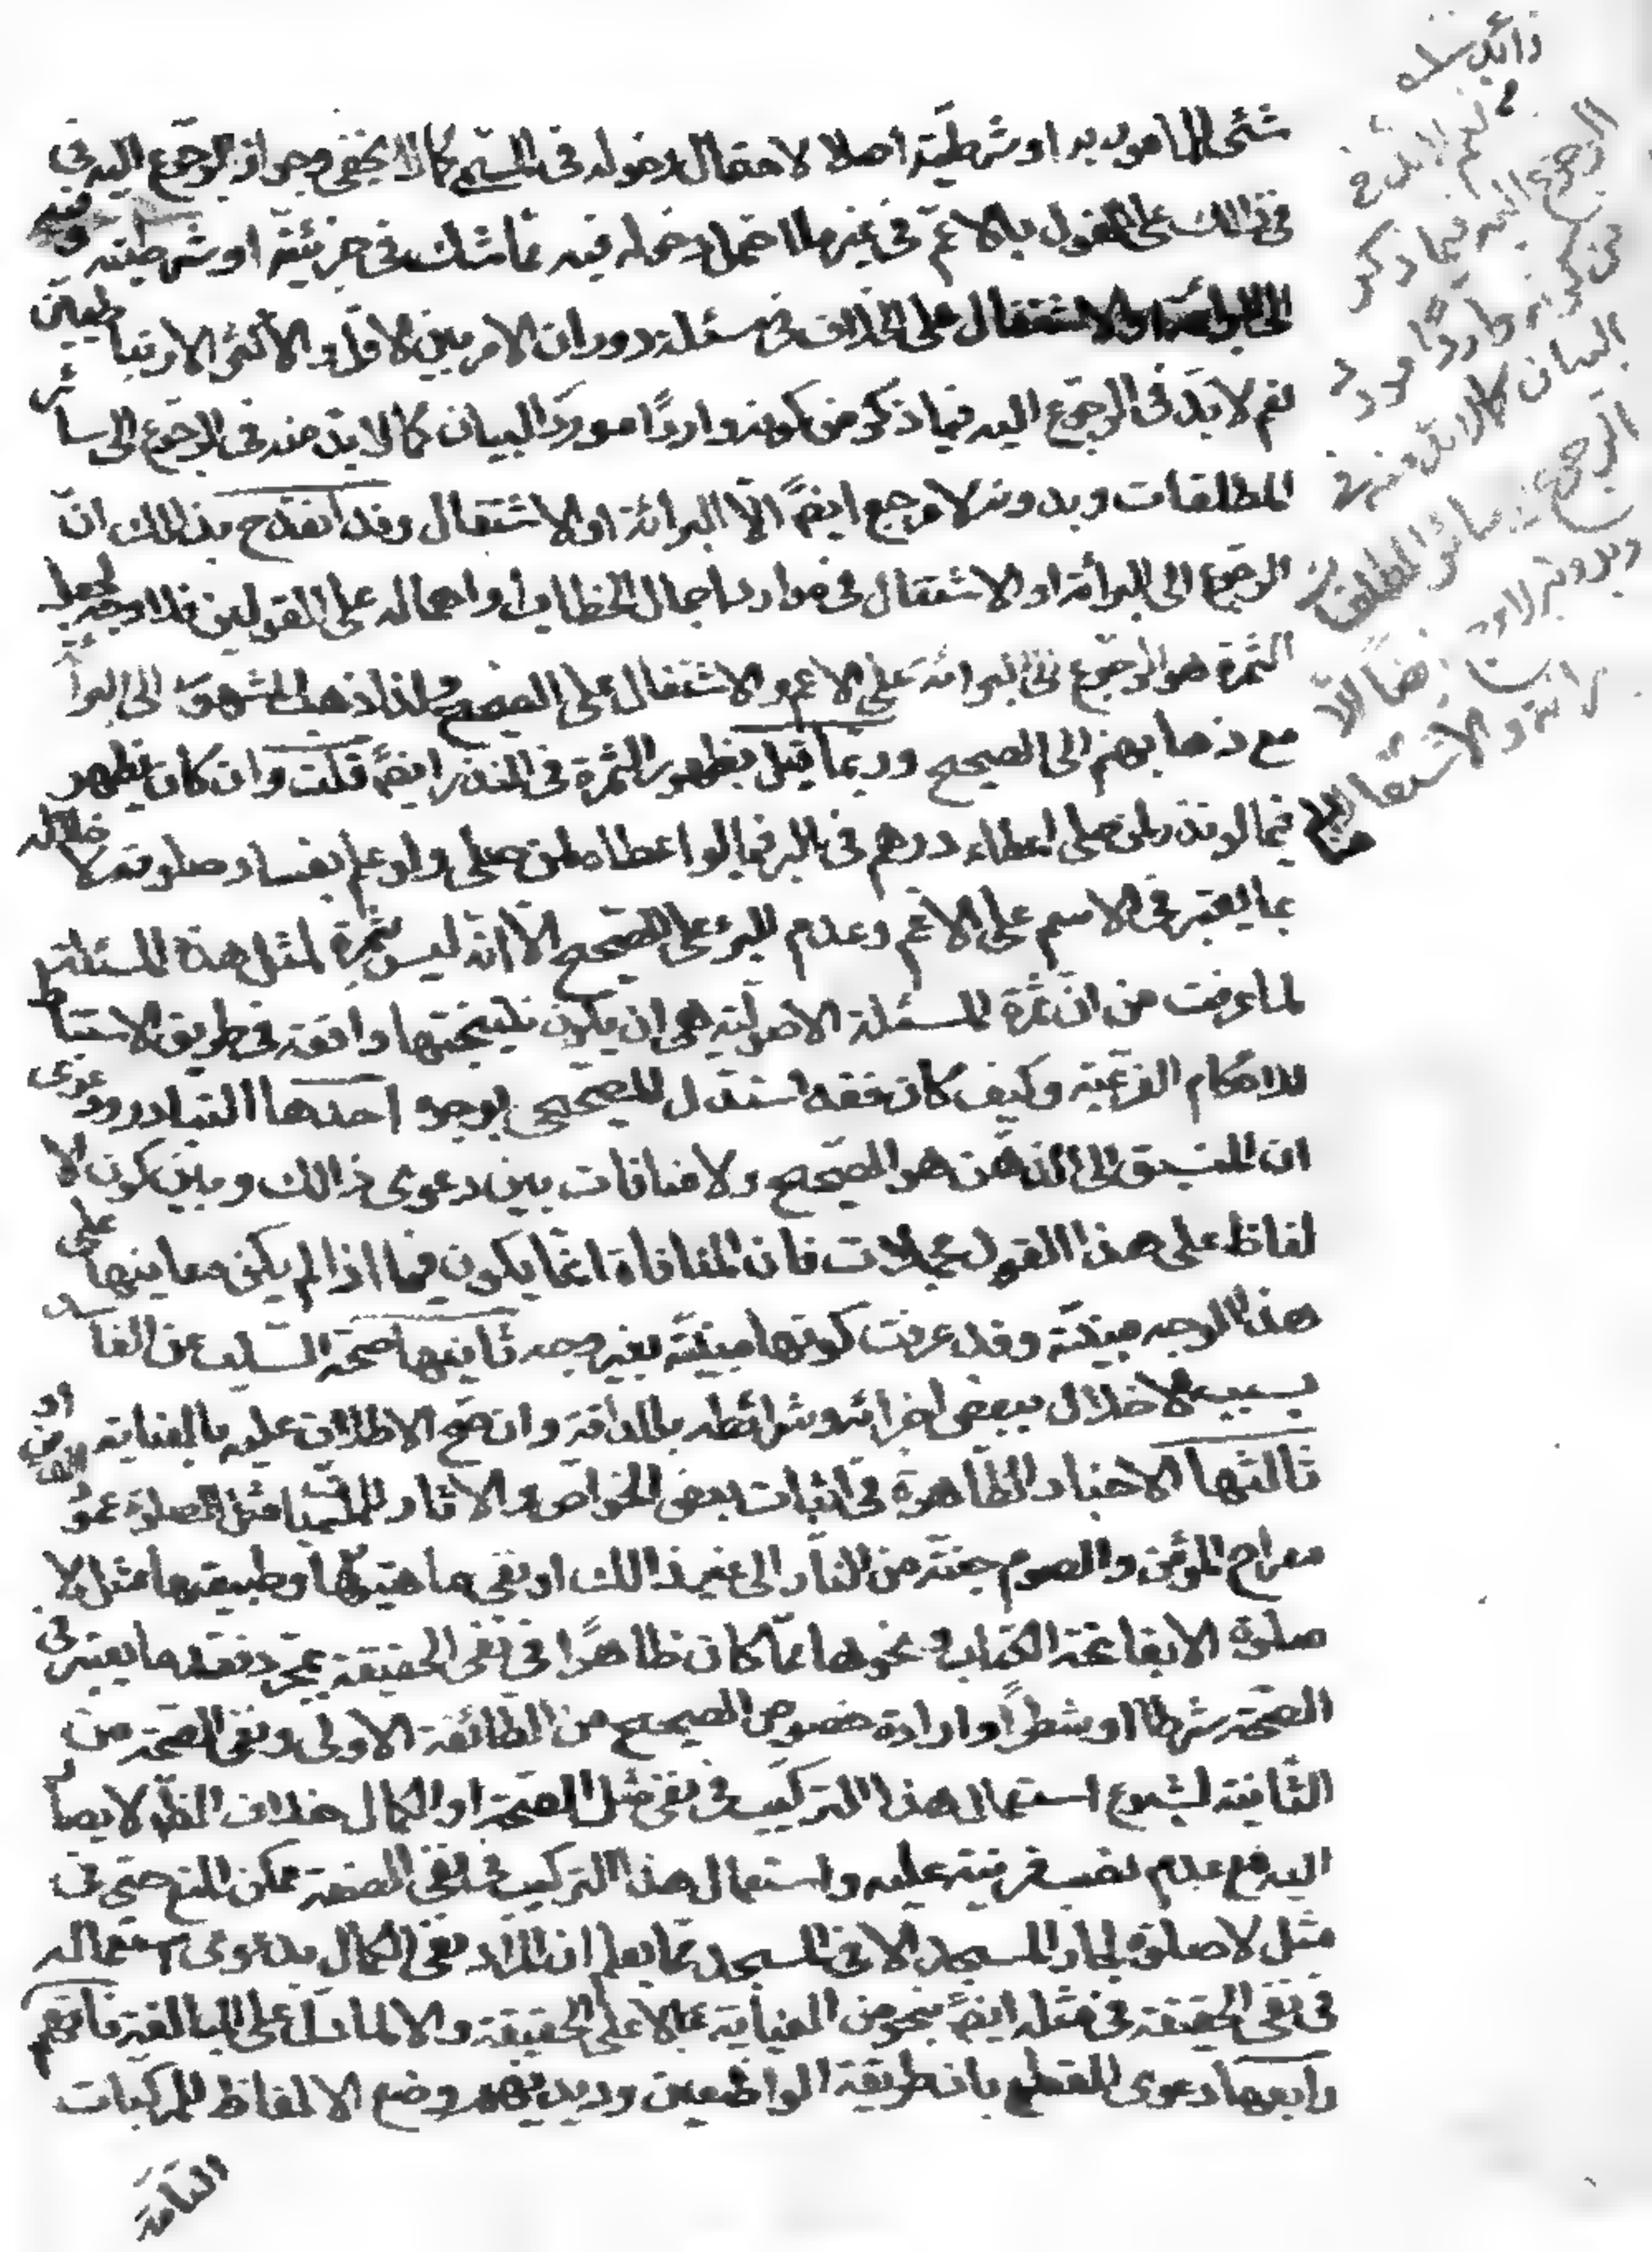 شئ للمامور به او شرطيّته اصلا لاحتمال دخوله فى المسمّى كما لا يخفى وجواز الرجوع اليه فى
فى ذالك على القول بالاعمّ فى غير ما احتمل دخوله فيه ممّا شك فى جزئيّته او شرطيّته فيه
الى البرائة او الاشتغال على الخلاف فى مسئلة دوران الامر بين الاقل والاكثر الارتباطيين
نعم لا بدّ فى الرجوع اليه فيما ذكر من كونه واردًا مورد البيان كما لا بدّ منه فى الرجوع الى سائر
المطلقات وبدونه لا مرجع ايضً الّا البرائة او الاشتغال وقد انقدح بذالك انّ
الرجوع الى البرائة او الاشتغال فى موارد اجمال الخطاب او اهماله على القولين فلا وجه لجعل
الثمرة هو الرجوع الى البرائة على الاعم والاشتغال على الصحيح ولذا ذهب المشهور الى البرا
مع ذهابهم الى الصحيح وربّما قيل بظهور الثمرة فى النذر ايضً قلت وان كان يظهر
فيما لو نذر لمن صلى اعطاء درهم فى البر فيما لو اعطاه لمن صلى ولو علم بفساد صلوته لاخلاله
بما يعتبر فى الاسم على الاعم وعدم البرء على الصّحيح الّا انّه ليس بثمرة لمثل هذة المسئلة
لما عرفت من انّ ثمرة المسئلة الاصوليّة هى ان يكون نتيجتها واقعة فى طريق الاستنباط
للاحكام الفرعيّة وكيف كان فقد استدل للصّحيحى بوجوه احدها التبادر ودعوى
ان المنسبق الى الذهن هو الصّحيح ولا منافات بين دعوى ذالك وبين كون الا
لفاظ على هذا القول مجملات فان المنافاة انّما يكون فيما اذا لم يكن معانيها على
هذا الوجه مبيّنة وقد عرفت كونها مبيّنة بغير وجه ثانيها صحّة السّلب عن الفاسد
بسبب الاخلال ببعض اجزائه وشرائطه بالمداقة وان صحّ الاطلاق عليه بالعناية
ثالثها الاخبار الظّاهرة فى اثبات بعض الخواص والاثار للمسمّيات مثل الصلوة عمود
معراج المؤمن والصوم جنّة من النّار الى غير ذالك او نفى ماهيّتها وطبيعتها مثل لا
صلوة الا بفاتحة الكتاب ونحوها ممّا كان ظاهرًا فى نفى الحقيقة بمجرّد فقد ما يعتبر فى
الصّحّة شرطًا او شطرًا وارادة خصوص الصحيح من الطّائفة الاولى ونفى الصّحّة من
الثّانية لشيوع استعمال هذا التركيب فى نفى مثل الصّحّة او الكمال خلاف الظّ لا يصار
اليه مع عدم نصب قرينة عليه واستعمال هذا التركيب فى نفى الصفة ممكن المنع حتى فى
مثل لا صلوة لجار المسجد الا فى المسجد ممّا يعلم ان المراد نفى الكمال بدعوى استعماله
فى نفى الحقيقة فى مثله ايضً بنحو من العناية لا على الحقيقة والا لما دلّ على المبالغة فافهم
رابعها دعوى القطع بان طريقة الواضعين وديدنهم وضع الالفاظ للمركبات
التّامّة
نعم لا بد فى
الرجوع اليه فيما ذكر
من كونه واردًا مورد
البيان كما لا بدّ منه فى
الرجوع الى سائر المطلقات
وبدونه لا مرجع ايضًا الّا
البرائة والاشتغال